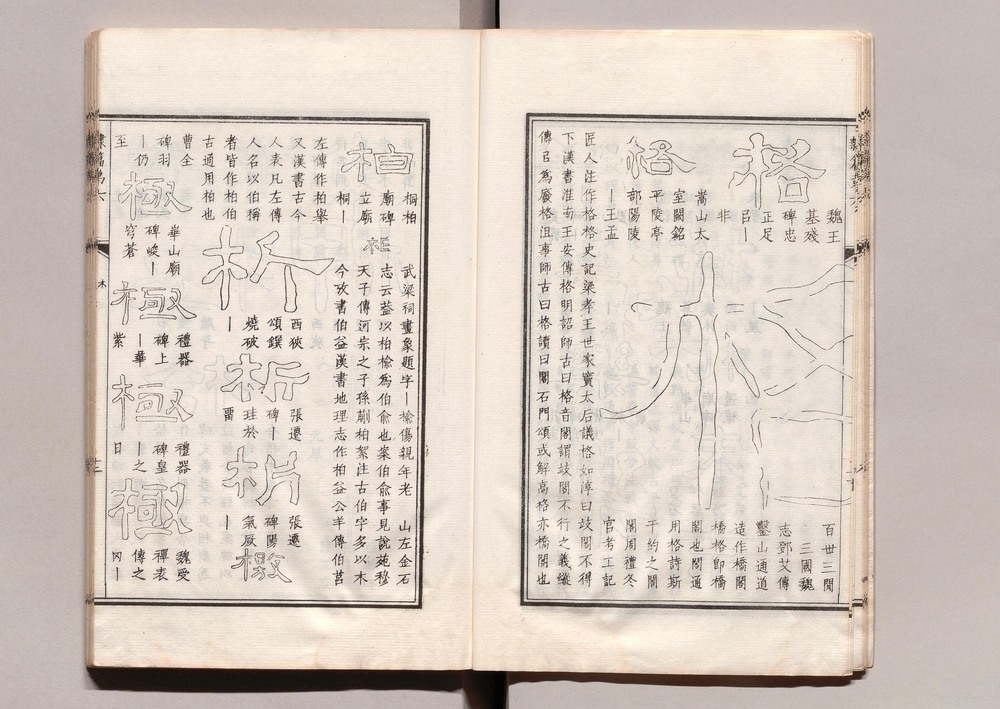 格
魏王
基殘
碑忠
正足
㠯丨
非
格
嵩山太
室闕銘
平陵亭
部陽陵
丨王孟
格
百世三閒
三國魏
志鄧艾傳
鑿山通道
造作橋閣
橋格卽橋
閣也閣通
用格詩斯
干約之閣
閣周禮冬
官考工記
匠人注作格格史記梁孝王世家竇太后議格如淳曰㱕閣不得
下漢書淮南王安傳格明詔師古曰格音閣謂㱕閣不行之義緃
傳㠯爲廢格沮事師古曰格讀曰閣石門頌或解高格亦橋閣也
柏
桐柏
廟碑
立廟
桐丨
柏
武梁祠畫象題字丨楡傷親年老
山左金石
志云葢以柏楡爲伯俞也案伯俞事見說苑穆
天子傳河宗之子孫䣙柏絮注古伯字多以木
今攷書伯益漢書地理志作柏益公羊傳伯莒
左傳作柏舉
又漢書古今
人表凡左傳
人名以伯稱
者皆作柏伯
古通用柏也
析
西狹
頌鐉
燒破
丨
析
張遷
碑丨
珪於
畱
析
張遷
碑陽
氣厥
丨
檄
曹全
碑羽
丨仍
至
極
華山廟
碑峻丨
穹蒼
極
禮器
碑上
丨華
紫
極
禮器
碑皇
丨之
日
極
魏受
禪表
傳之
罔丨
木